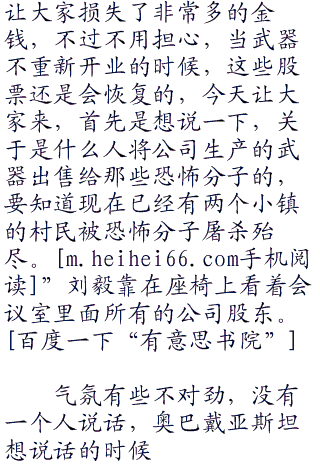 让大家损失了非常多的金
钱，不过不用担心，当武器
不重新开业的时候，这些股
票还是会恢复的，今天让大
家来，首先是想说一下，关
于是什么人将公司生产的武
器出售给那些恐怖分子的，
要知道现在已经有两个小镇
的村民被恐怖分子屠杀殆
尽。[m.heihei66.com手机阅
读]”刘毅靠在座椅上看着会
议室里面所有的公司股东。
[百度一下“有意思书院”]
气氛有些不对劲，没有
一个人说话，奥巴戴亚斯坦
想说话的时候